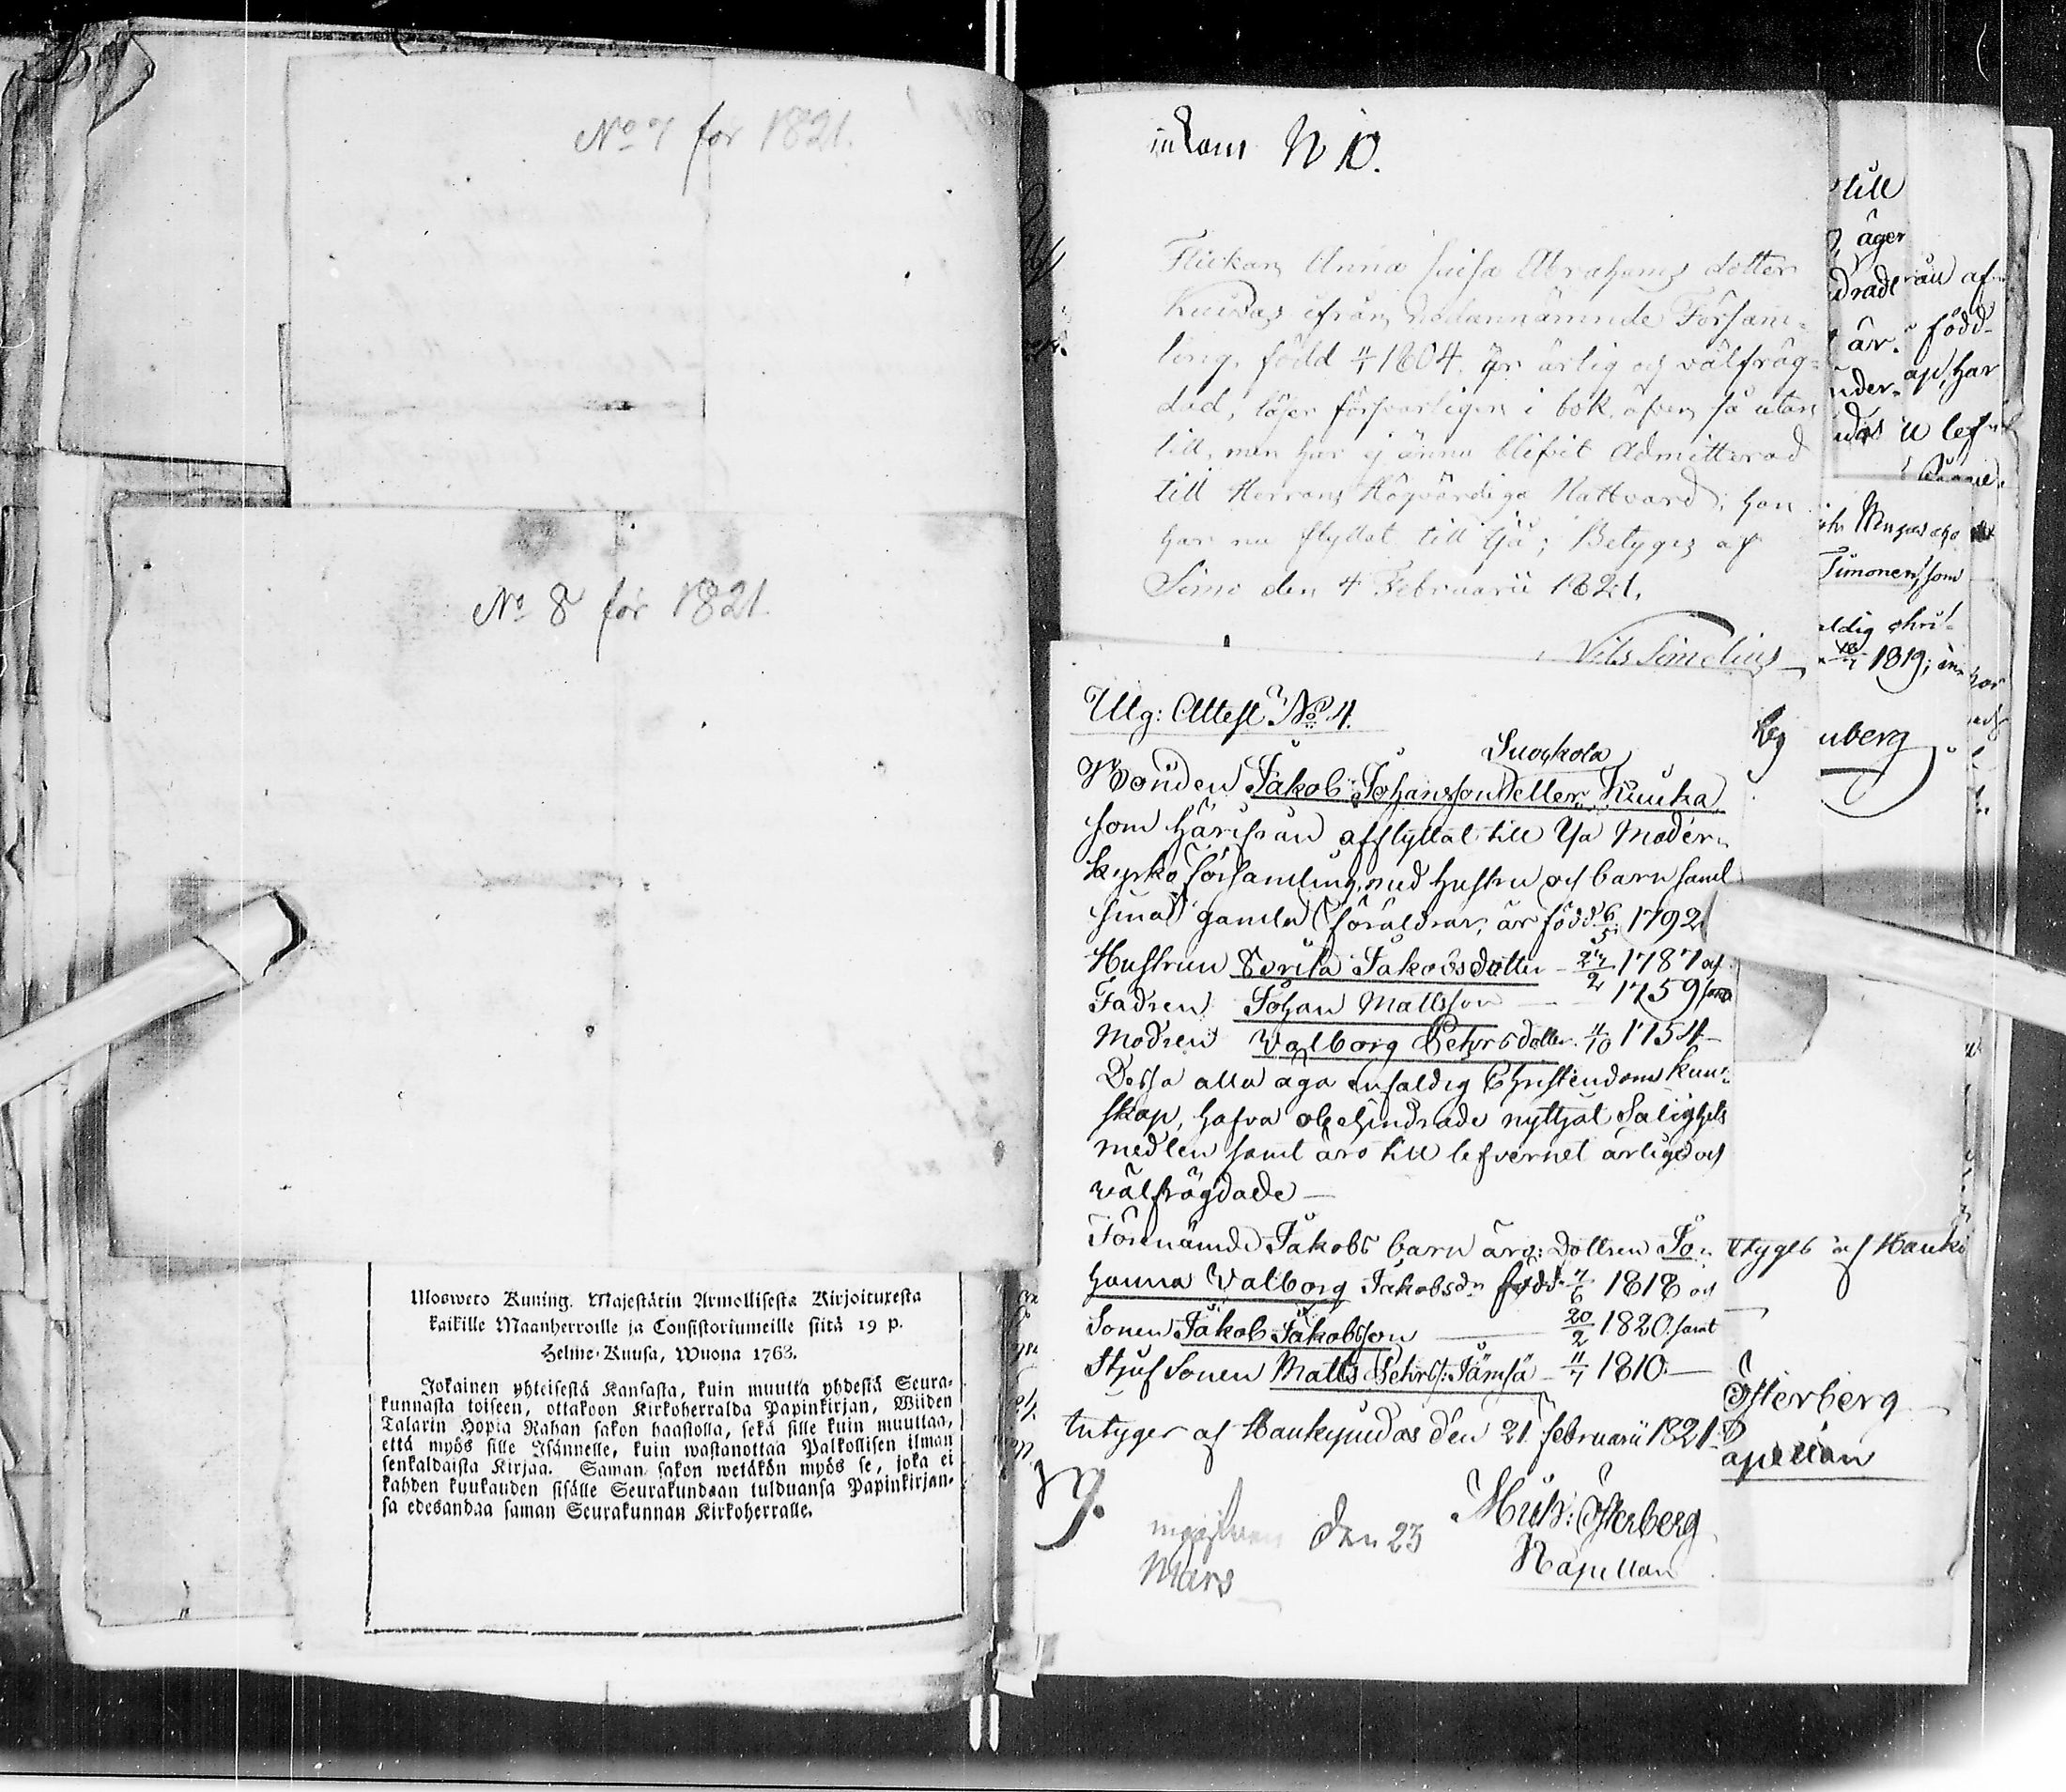 No 7 for 1821.
No 8 för 1821.
Uloswето Kuning. Majestätin Armollisesta Kirjoituxesta
kaikille Maanherroille ja Consistoriumeille siitä 19 p.
Helme-Kuusa, Wuona 1763.
Jokainen yhteisestä Kansasta, kuin muutta yhdestä Seura-
kunnasta toiseen, ottakoon Kirkoherralda Papinkirjan, Wiiden
Talarin Hopia Rahan sakon haastolla, sekä sille kuin muuttaa,
että myös sille Isännelle, kuin wastanottaa Palkollisen ilman
senkaldaista Kirjaa. Saman sakon wetäkön myös se, joka ei
kahden kuukauden sisälle Seurakundaan tulduansa Papinkirjan-
sa edesandaa saman Seurakunnan Kirkoherralle.
inkom N 10.
Flickan Anna Luisa Abrahams dotter
ifrån nedannämnde Försam-
ling, född 4/1 1804. är ärlig och välfräg-
dad, läser försvarligen i bok, äfven så utan
till, men har ej ännu blifvit Admitterad
till Herrans Högvärdiga Nattvard; hon
har nu flyttat till Ijå; Betyges af
Simo den 4 Februarii 1821.
Nils Simelius
Utg: Attest No 4.
Suockola
Bonden Jakob Johansson eller Kuuka
som härifrån afflyttat till Ijå Moder-
kyrko församling, med hustru och barn samt
sina gamla föräldrar, är född 6/5 1792
Hustrun Brita Jakobsdotter - 27/2 1787 och
Fadren Johan Mattsson — 1759 samt
Modren Valborg Pehrsdotter. 4/10 1754 —
Dessa alla äga enfaldig Christendoms kun-
skap, hafva obehindrade nyttjat Salighets
medlen samt äro till lefvernet ärlige och
välfrägdade —
Förenämde Jakobs barn äro: Dottren Jo-
hanna Valborg Jakobsdr född 7/6 1818 och
Sonen Jakob Jakobsson — 20/2 1820. samt
Stjuf Sonen Matts Pehrs: Jämsä - 11/7 1810 —
Intyger af Haukipudas den 21 februarii 1821.
Österberg
Kapellan
9.
den 23
Mars
till
äger
af
född
är.
har
1819;
uberg
af Hauki
Österberg
apellan